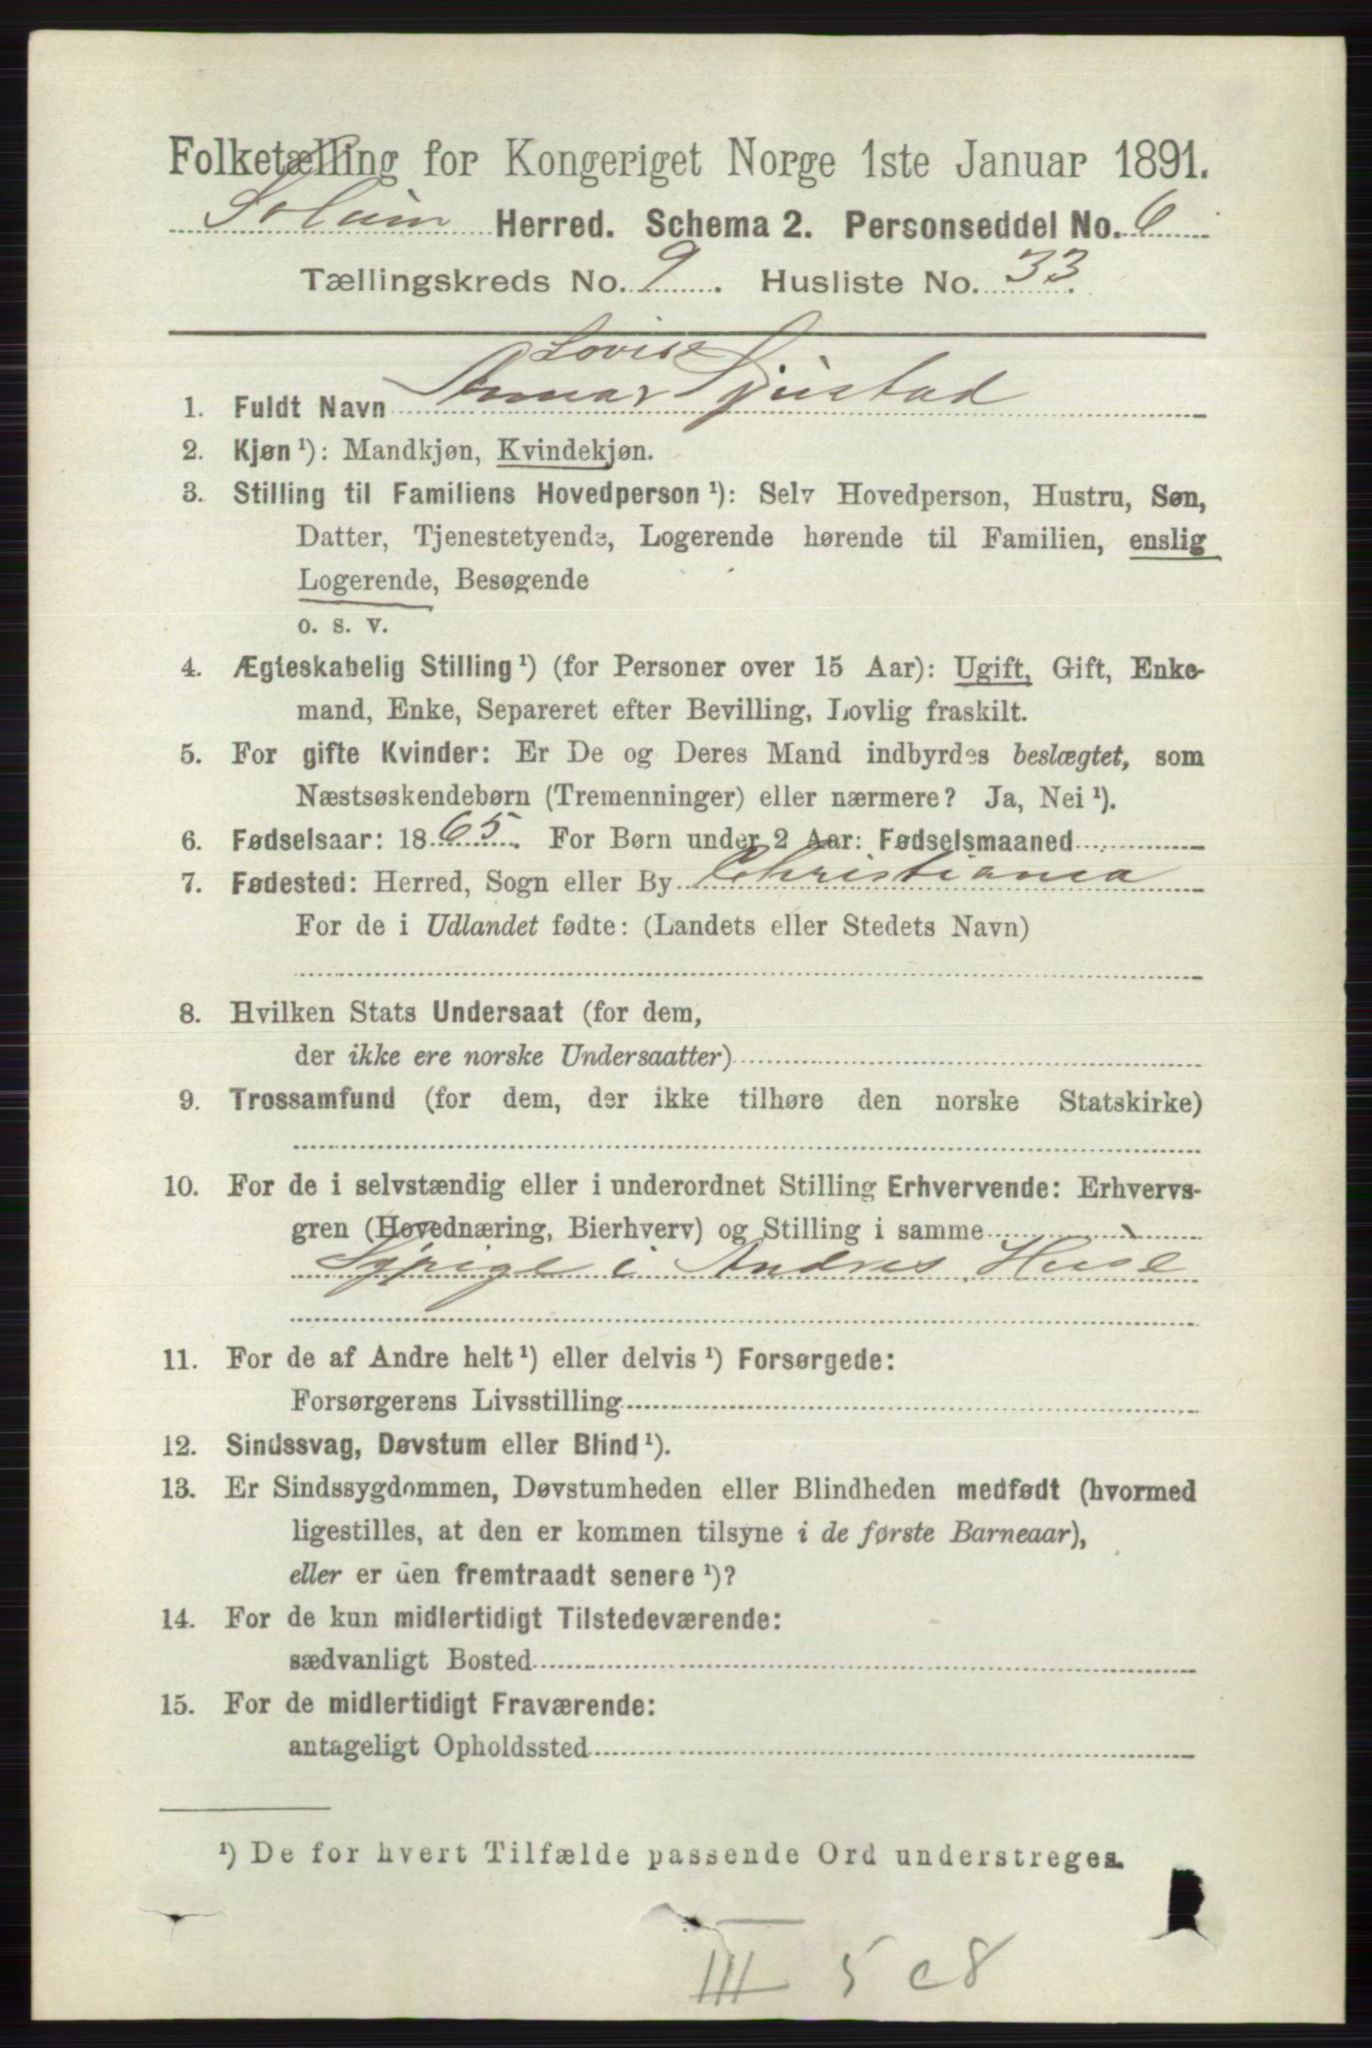 Folketælling for Kongeriget Norge 1ste Januar 1891.
Solum Herred. Schema 2. Personseddel No. 6
Tællingskreds No. 9. Husliste No. 33.
Lovise
1. Fuldt Navn Anna Gjustad
2. Kjøn¹): Mandkjøn, Kvindekjøn.
3. Stilling til Familiens Hovedperson¹): Selv Hovedperson, Hustru, Søn,
Datter, Tjenestetyende, Logerende hørende til Familien, enslig
Logerende, Besøgende
o. s. v.
4. Ægteskabelig Stilling¹) (for Personer over 15 Aar): Ugift, Gift, Enke-
mand, Enke, Separeret efter Bevilling, Lovlig fraskilt.
5. For gifte Kvinder: Er De og Deres Mand indbyrdes beslægtet, som
Næstsøskendebørn (Tremenninger) eller nærmere? Ja, Nei¹).
6. Fødselsaar: 1865. For Børn under 2 Aar: Fødselsmaaned
7. Fødested: Herred, Sogn eller By Christiania
For de i Udlandet fødte: (Landets eller Stedets Navn)
8. Hvilken Stats Undersaat (for dem,
der ikke ere norske Undersaatter)
9. Trossamfund (for dem, der ikke tilhøre den norske Statskirke)
10. For de i selvstændig eller i underordnet Stilling Erhvervende: Erhvervs-
gren (Hovednæring, Bierhverv) og Stilling i samme
Sypige i Andres Huse
11. For de af Andre helt¹) eller delvis¹) Forsørgede:
Forsørgerens Livsstilling
12. Sindssvag, Døvstum eller Blind¹).
13. Er Sindssygdommen, Døvstumheden eller Blindheden medfødt (hvormed
ligestilles, at den er kommen tilsyne i de første Barneaar),
eller er den fremtraadt senere¹)?
14. For de kun midlertidigt Tilstedeværende:
sædvanligt Bosted
15. For de midlertidigt Fraværende:
antageligt Opholdssted
¹) De for hvert Tilfælde passende Ord understreges.
III 5 c8